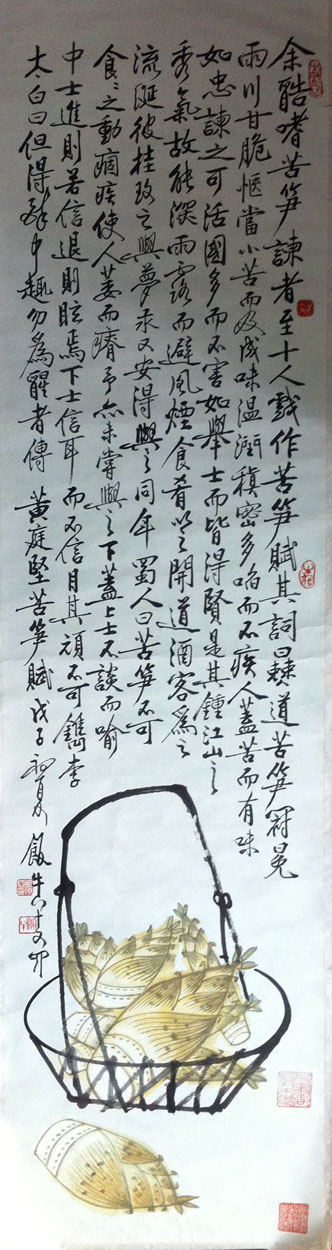 余酷嗜苦笋諫者至十人戲作苦笋賦其詞曰僰道苦笋冠冕
兩川甘脆惬當小苦而反成味温潤稹密多啗而不疾人蓋苦而有味
如忠諫之可活國多而不害如舉士而皆得賢是其鍾江山之
秀氣故能深雨露而避風煙食肴以之開道酒客為之
流涎彼桂玫之與夢汞又安得與之同年蜀人曰苦笋不可
食〻之動痼疾使人萎而瘠予亦未嘗與之下蓋上士不談而喻
中士進則若信退則眩焉下士信耳而不信目其頑不可鐫李
太白曰但得醉中趣勿為醒者傳 黃庭堅苦笋賦 戊子初夏 飯牛八十又